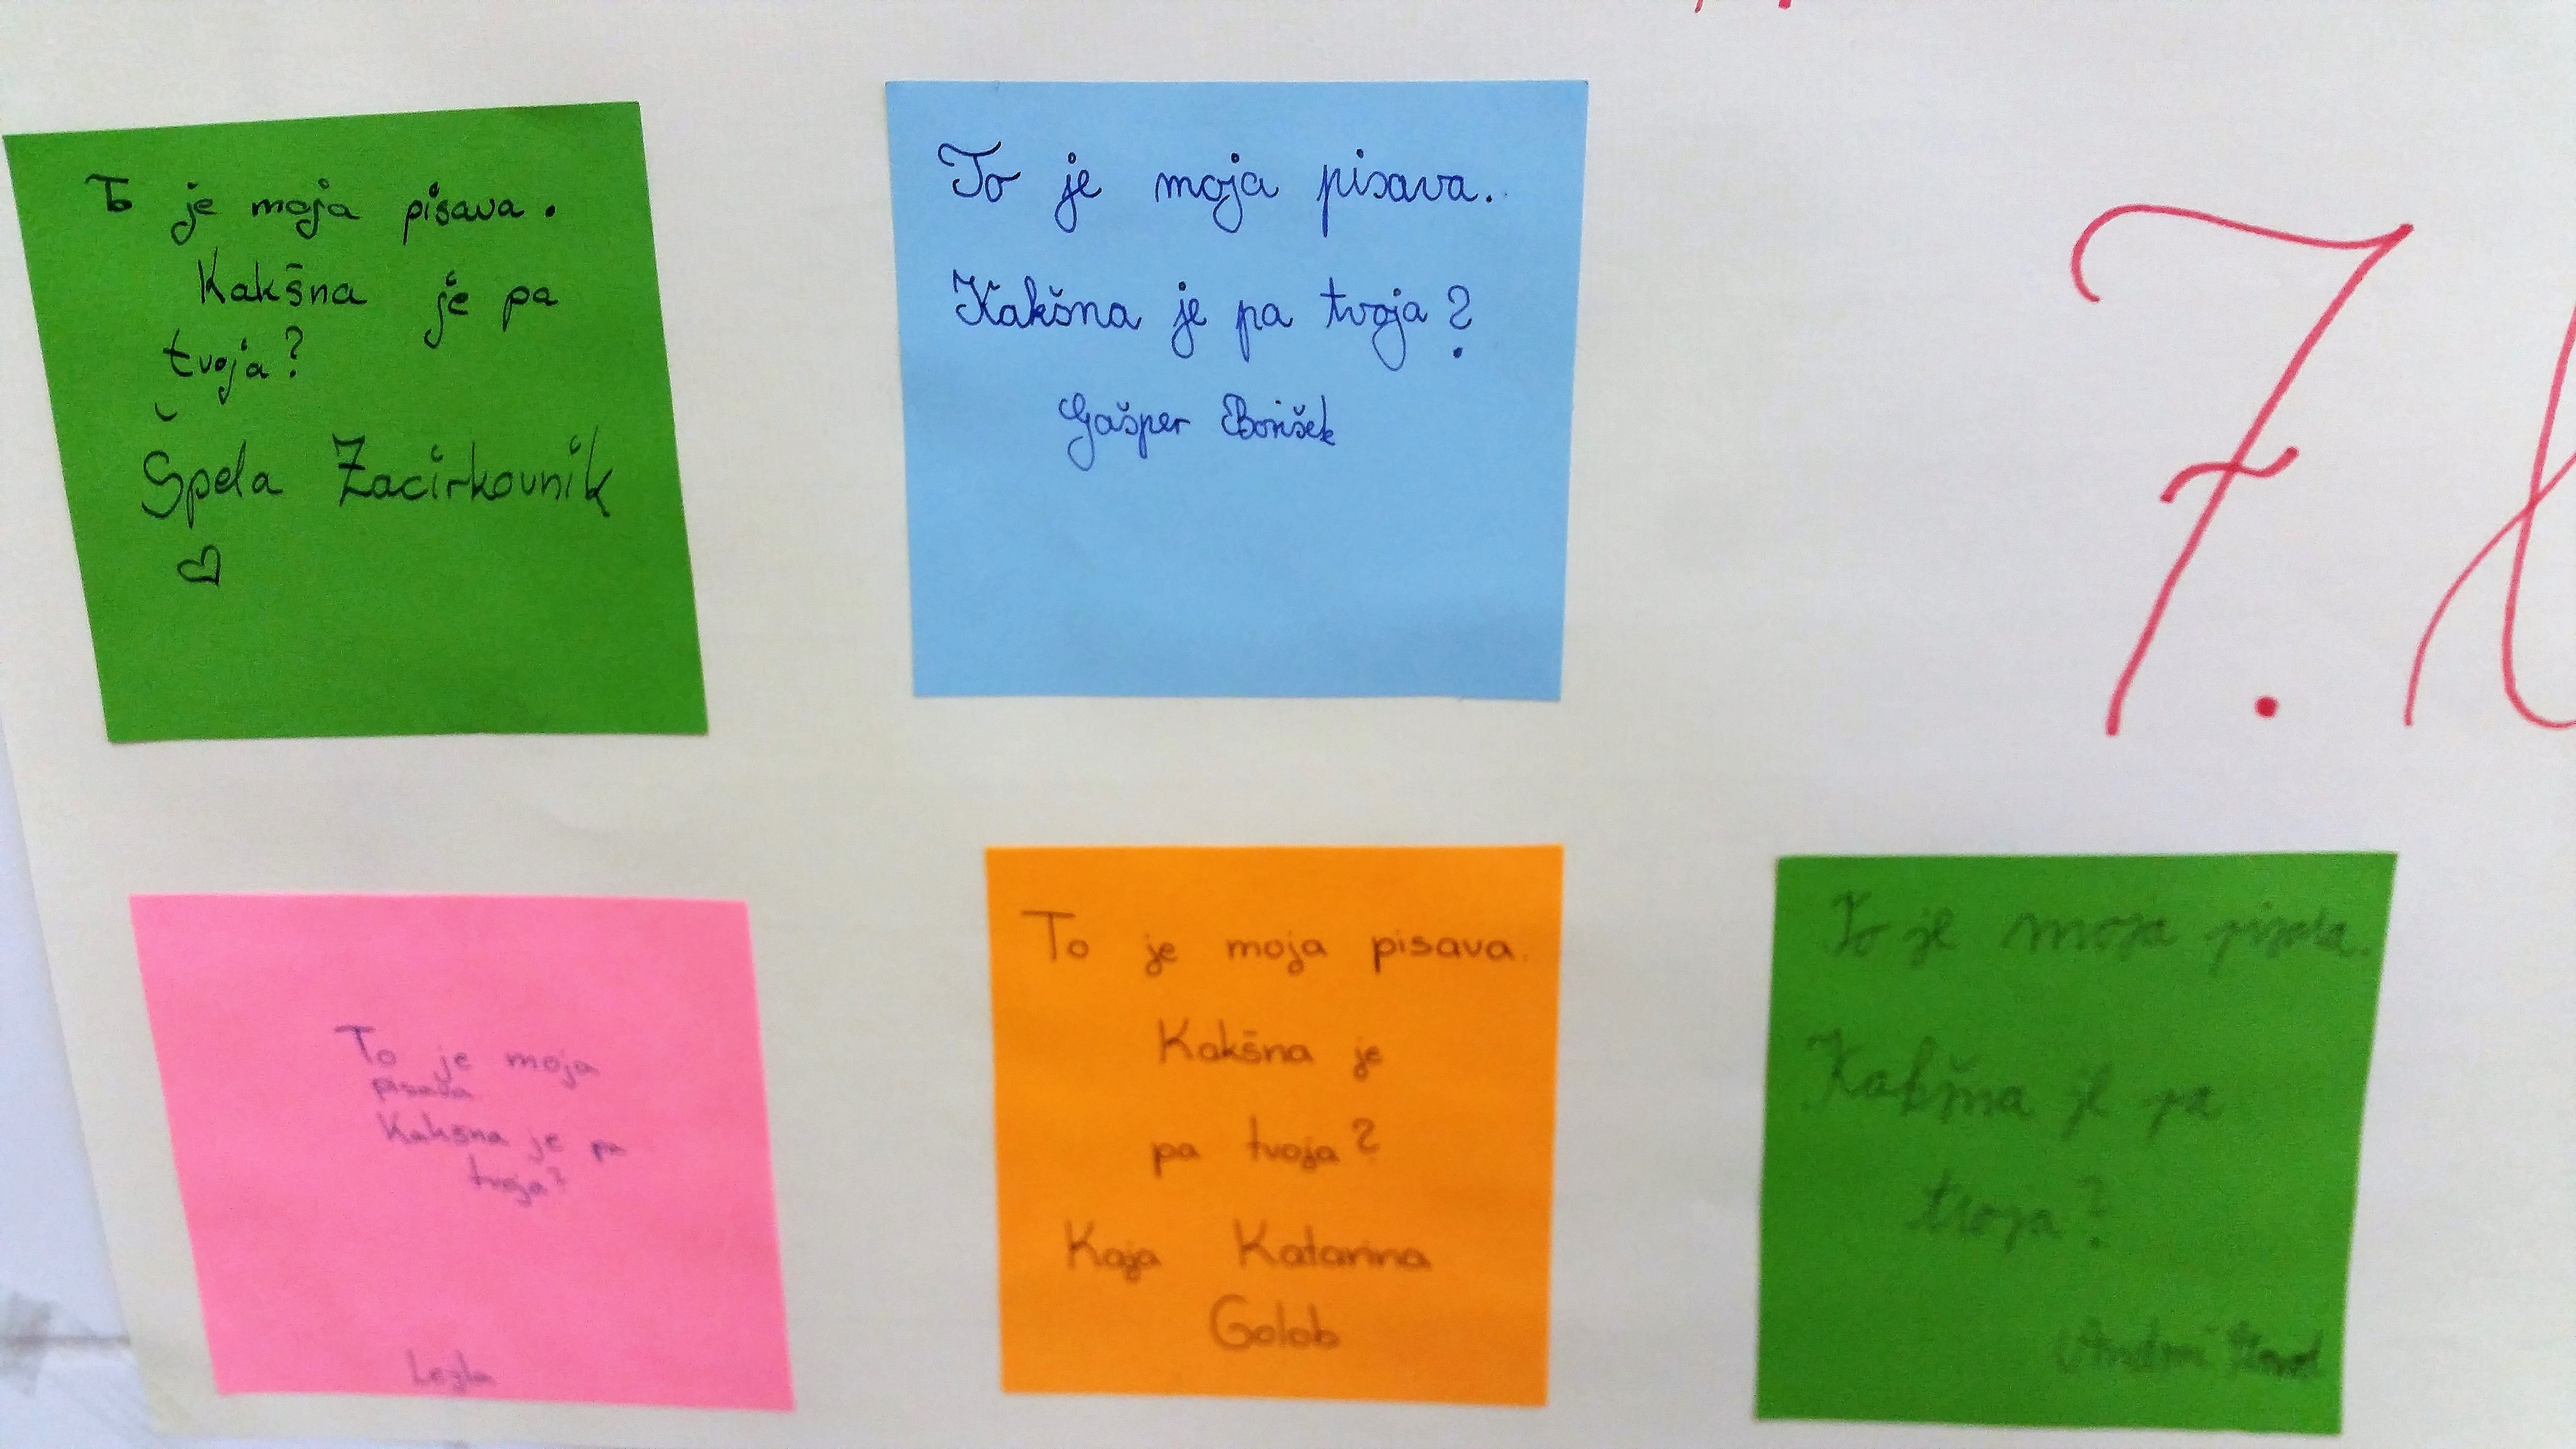 To je moja pisava.
Kakšna je pa
tvoja?
Špela Zacirkovnik
To je moja pisava.
Kakšna je pa tvoja?
Gašper Borišek
7.
To je moja
pisava
Kakšna je pa
tvoja?
Lejla
To je moja pisava.
Kakšna je
pa tvoja?
Kaja Katarina
Golob
To je moja pisava.
Kakšna je pa
tvoja?